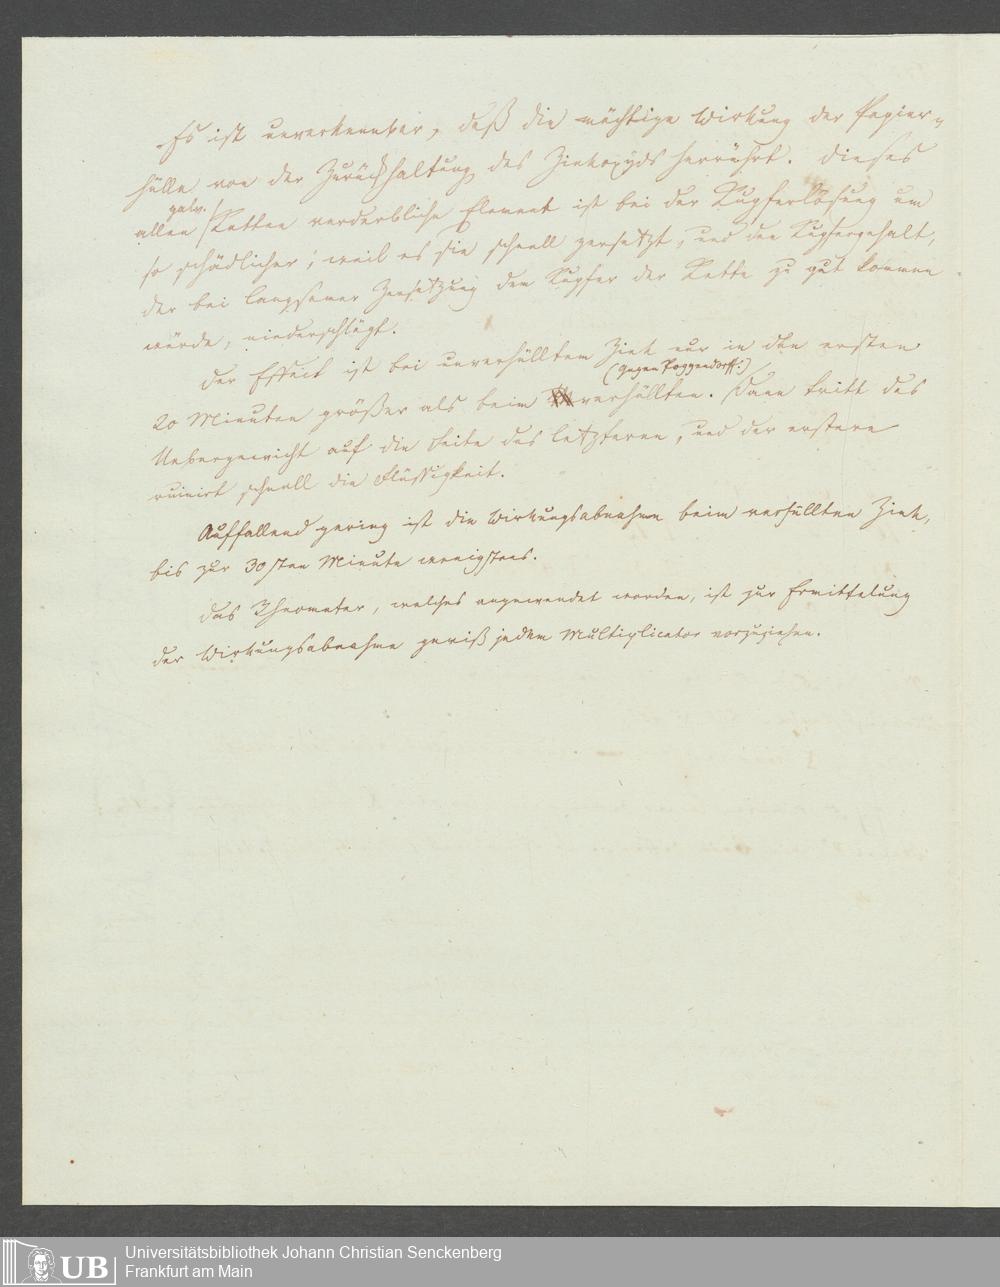 Es ist unverkennbar, daß die mächtige Wirkung der Papier-
hülle von der Zurückhaltung des Zinkoxyds herrührt. Dieses
allen galv. Ketten verderbliche Element ist bei der Kupferlösung um
so schädlicher, weil es sie schnell zersetzt, und den Kupfergehalt,
der bei langsamer Zersetzung dem Kupfer der Kette zu gut kommen
würde, niederschlägt.
Der Effect ist bei unverhülltem Zink nur in den ersten
(gegen Poggendorff.)
20 Minuten größer als beim verhüllten. Dann tritt das
Uebergewicht auf die Seite des letzteren, und der erstere
ruinirt schnell die Flüssigkeit.
Auffallend gering ist die Wirkungsabnahme beim verhüllten Zink,
bis zur 30sten Minute wenigstens.
Das Rheometer, welches angewendet worden, ist zur Ermittelung
der Wirkungsabnahme gewiß jedem Multiplicator vorzuziehen.
UB
Universitätsbibliothek Johann Christian Senckenberg
Frankfurt am Main